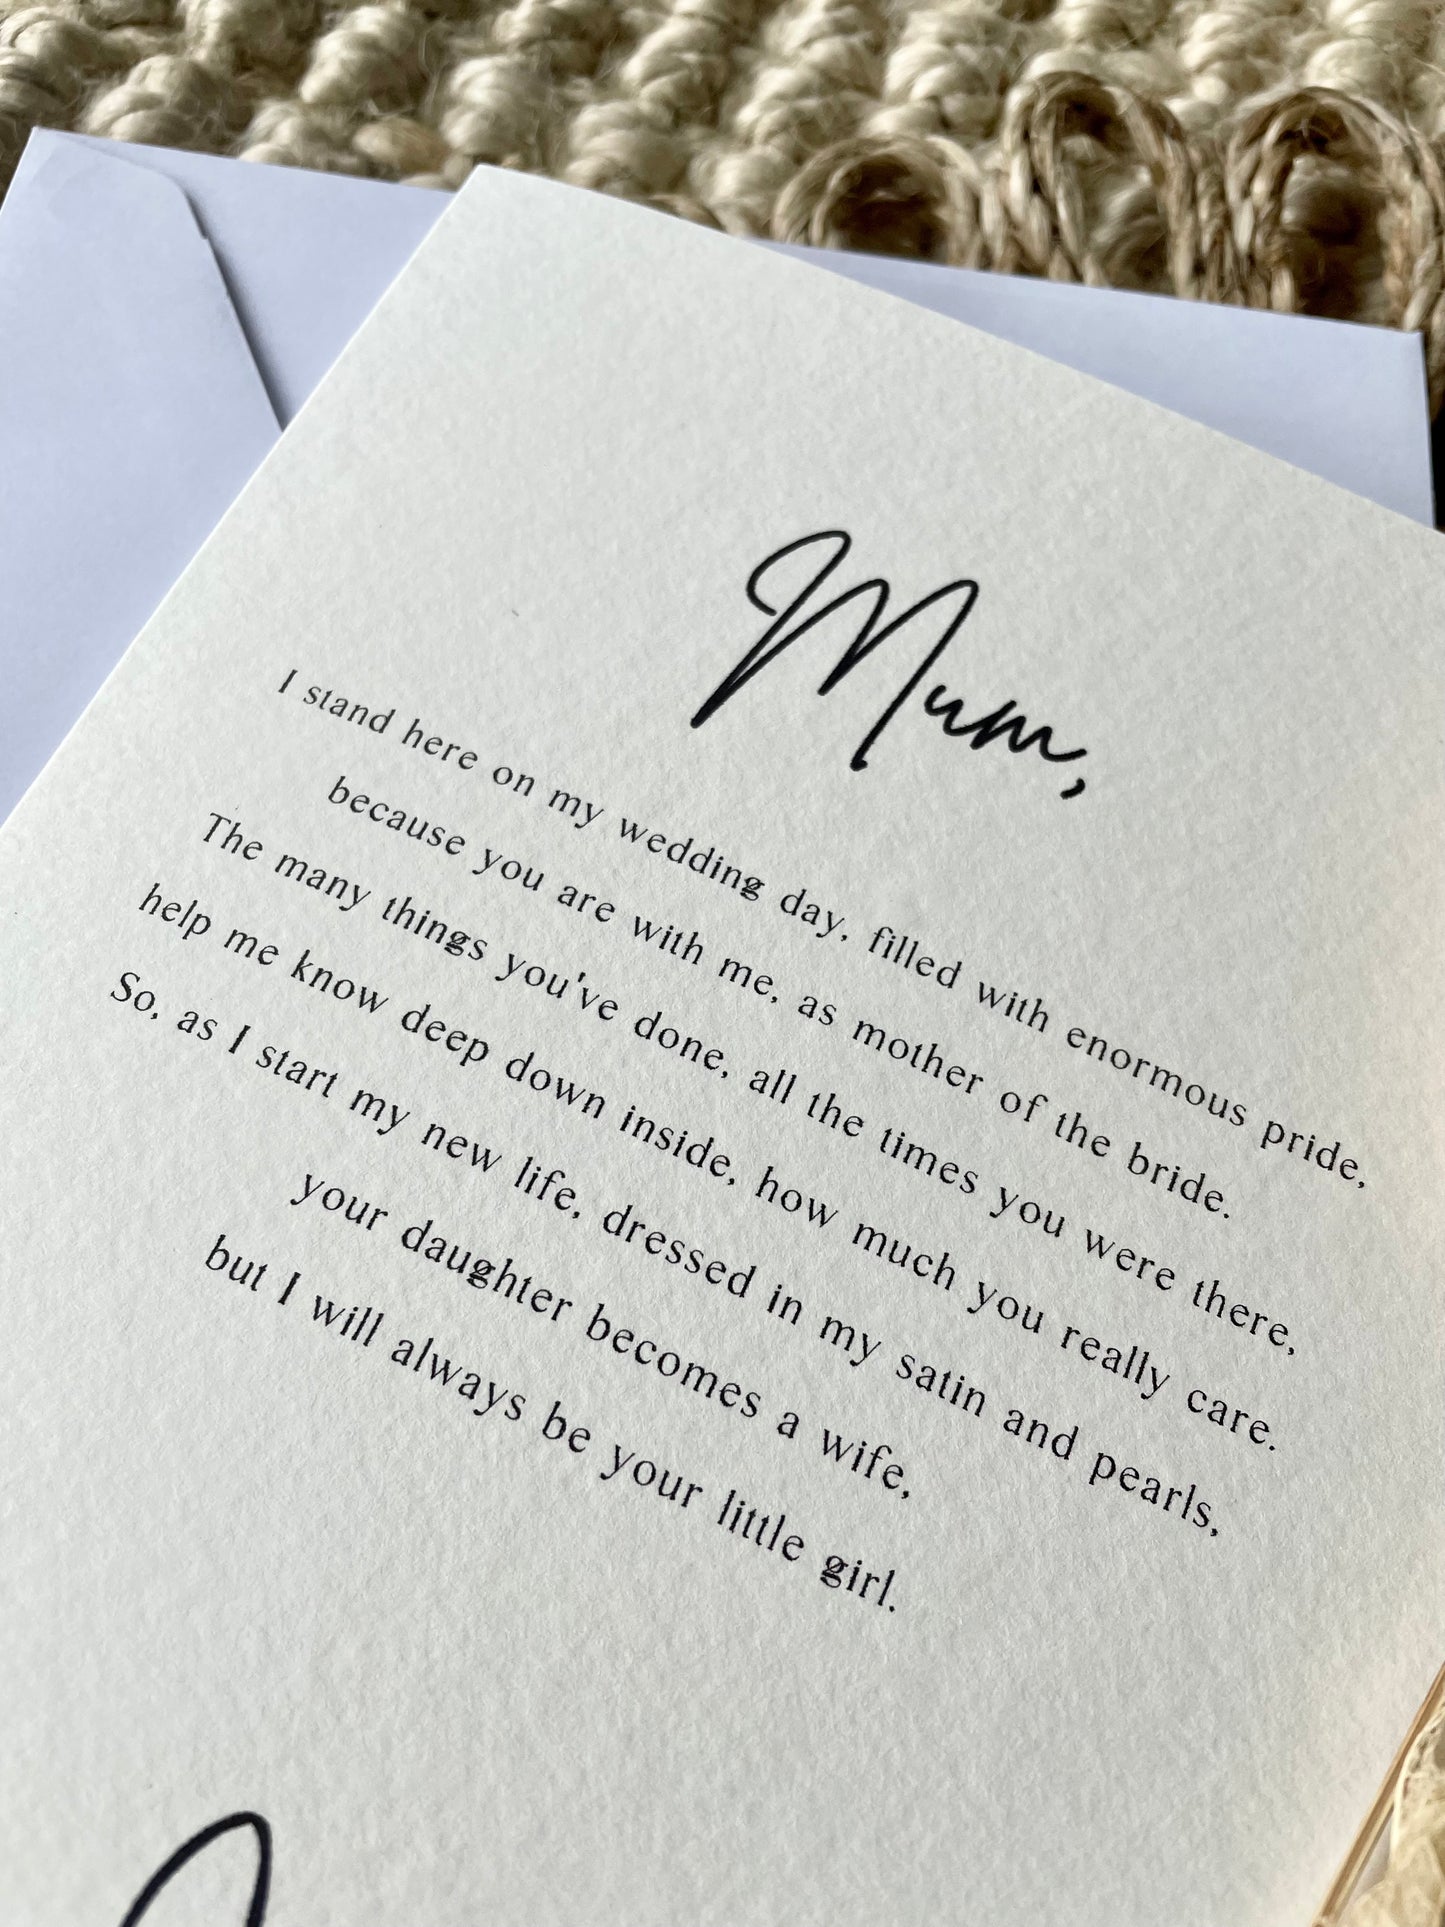 Mum,
I stand here on my wedding day, filled with enormous pride,
because you are with me, as mother of the bride.
The many things you've done, all the times you were there,
help me know deep down inside, how much you really care.
So, as I start my new life, dressed in my satin and pearls,
your daughter becomes a wife,
but I will always be your little girl.